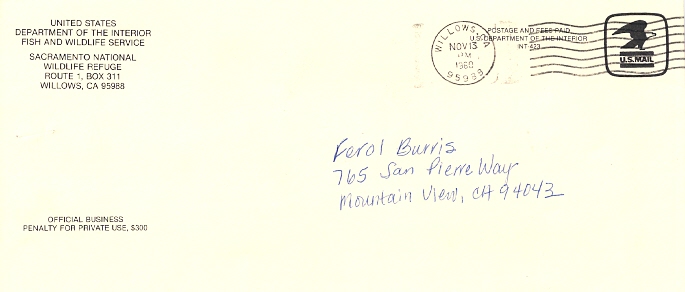 UNITED STATES
DEPARTMENT OF THE INTERIOR
FISH AND WILDLIFE SERVICE
SACRAMENTO NATIONAL
WILDLIFE REFUGE
ROUTE 1, BOX 311
WILLOWS, CA 95988
WILLOWS, CA
NOV 13
PM
1980
95988
POSTAGE AND FEES PAID
U.S. DEPARTMENT OF THE INTERIOR
INT-423
U.S.MAIL
Ferol Burris
765 San Pierre Way
Mountain View, CA 94043
OFFICIAL BUSINESS
PENALTY FOR PRIVATE USE, $300